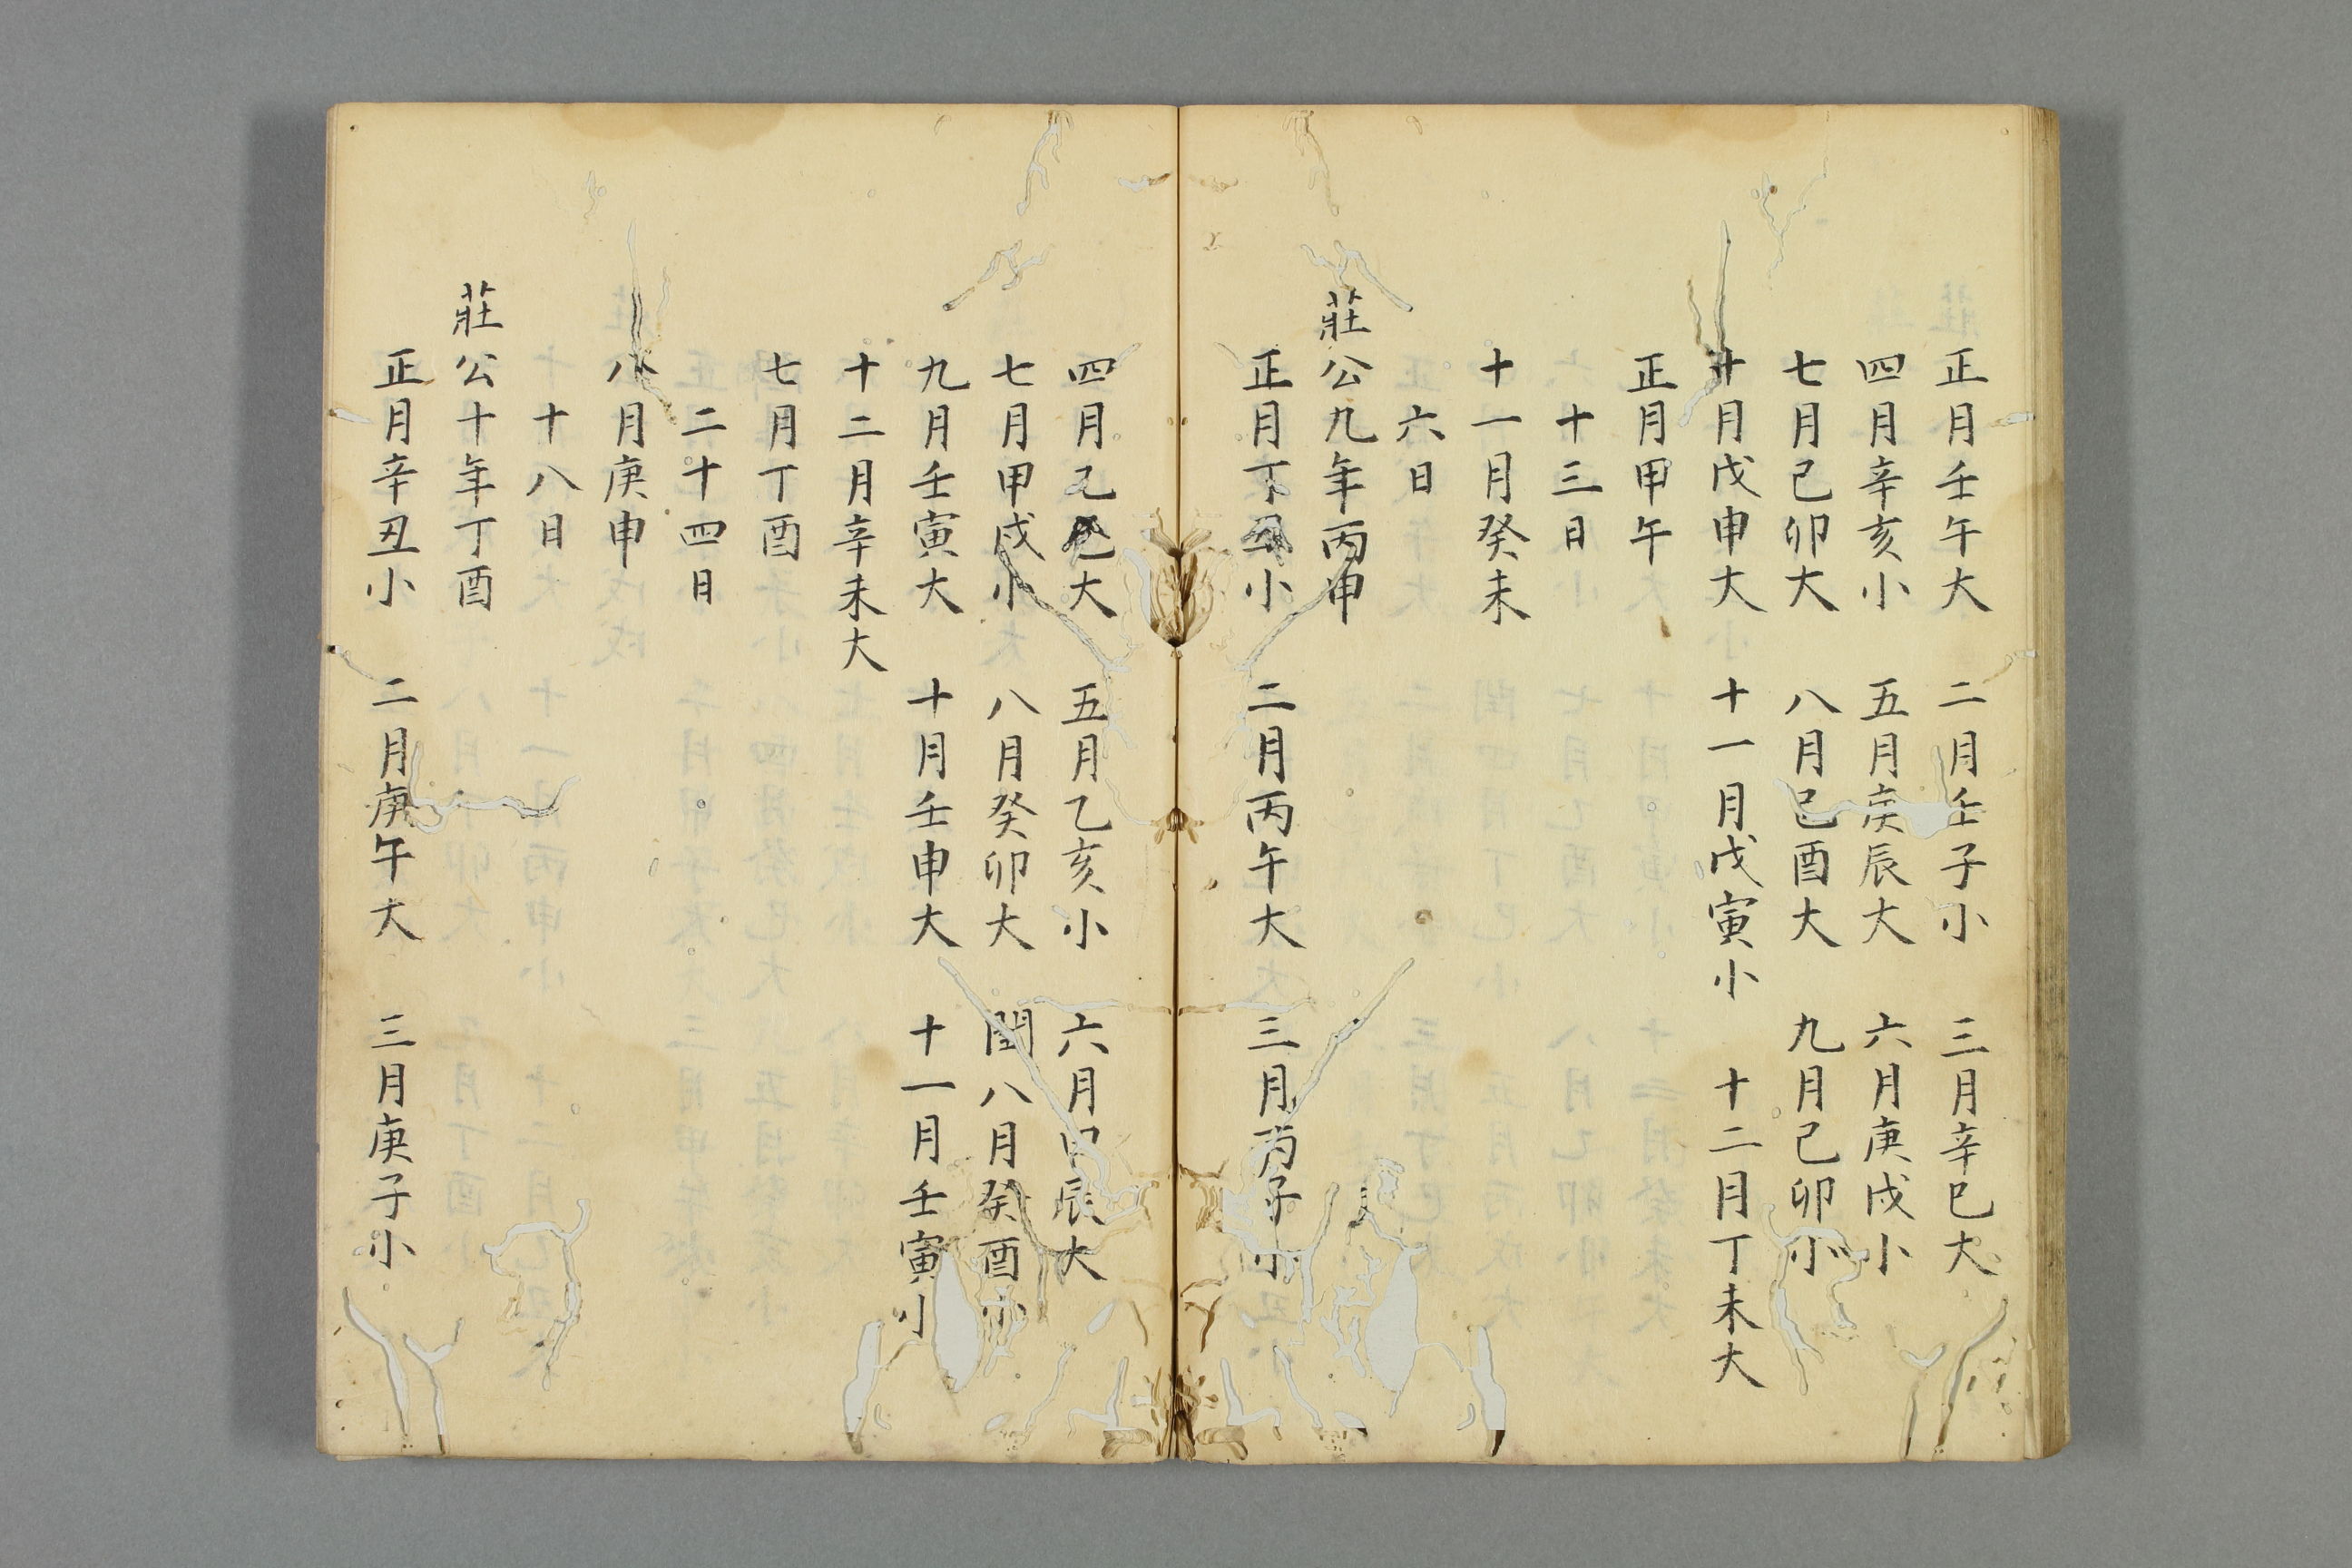 正月壬午大　二月壬子小　三月辛巳大
四月辛亥小　五月庚辰大　六月庚戌小
七月己卯大　八月己酉大　九月己卯小
十月戊申大　十一月戊寅小　十二月丁未大
正月甲午
十三日
十一月癸未
六日
莊公九年丙申
正月丁丑小　二月丙午大　三月丙子小
四月乙巳大　五月乙亥小　六月甲辰大
七月甲戌小　八月癸卯大　閏八月癸酉小
九月壬寅大　十月壬申大　十一月壬寅小
十二月辛未大
七月丁酉
二十四日
八月庚申
十八日
莊公十年丁酉
正月辛丑小　二月庚午大　三月庚子小